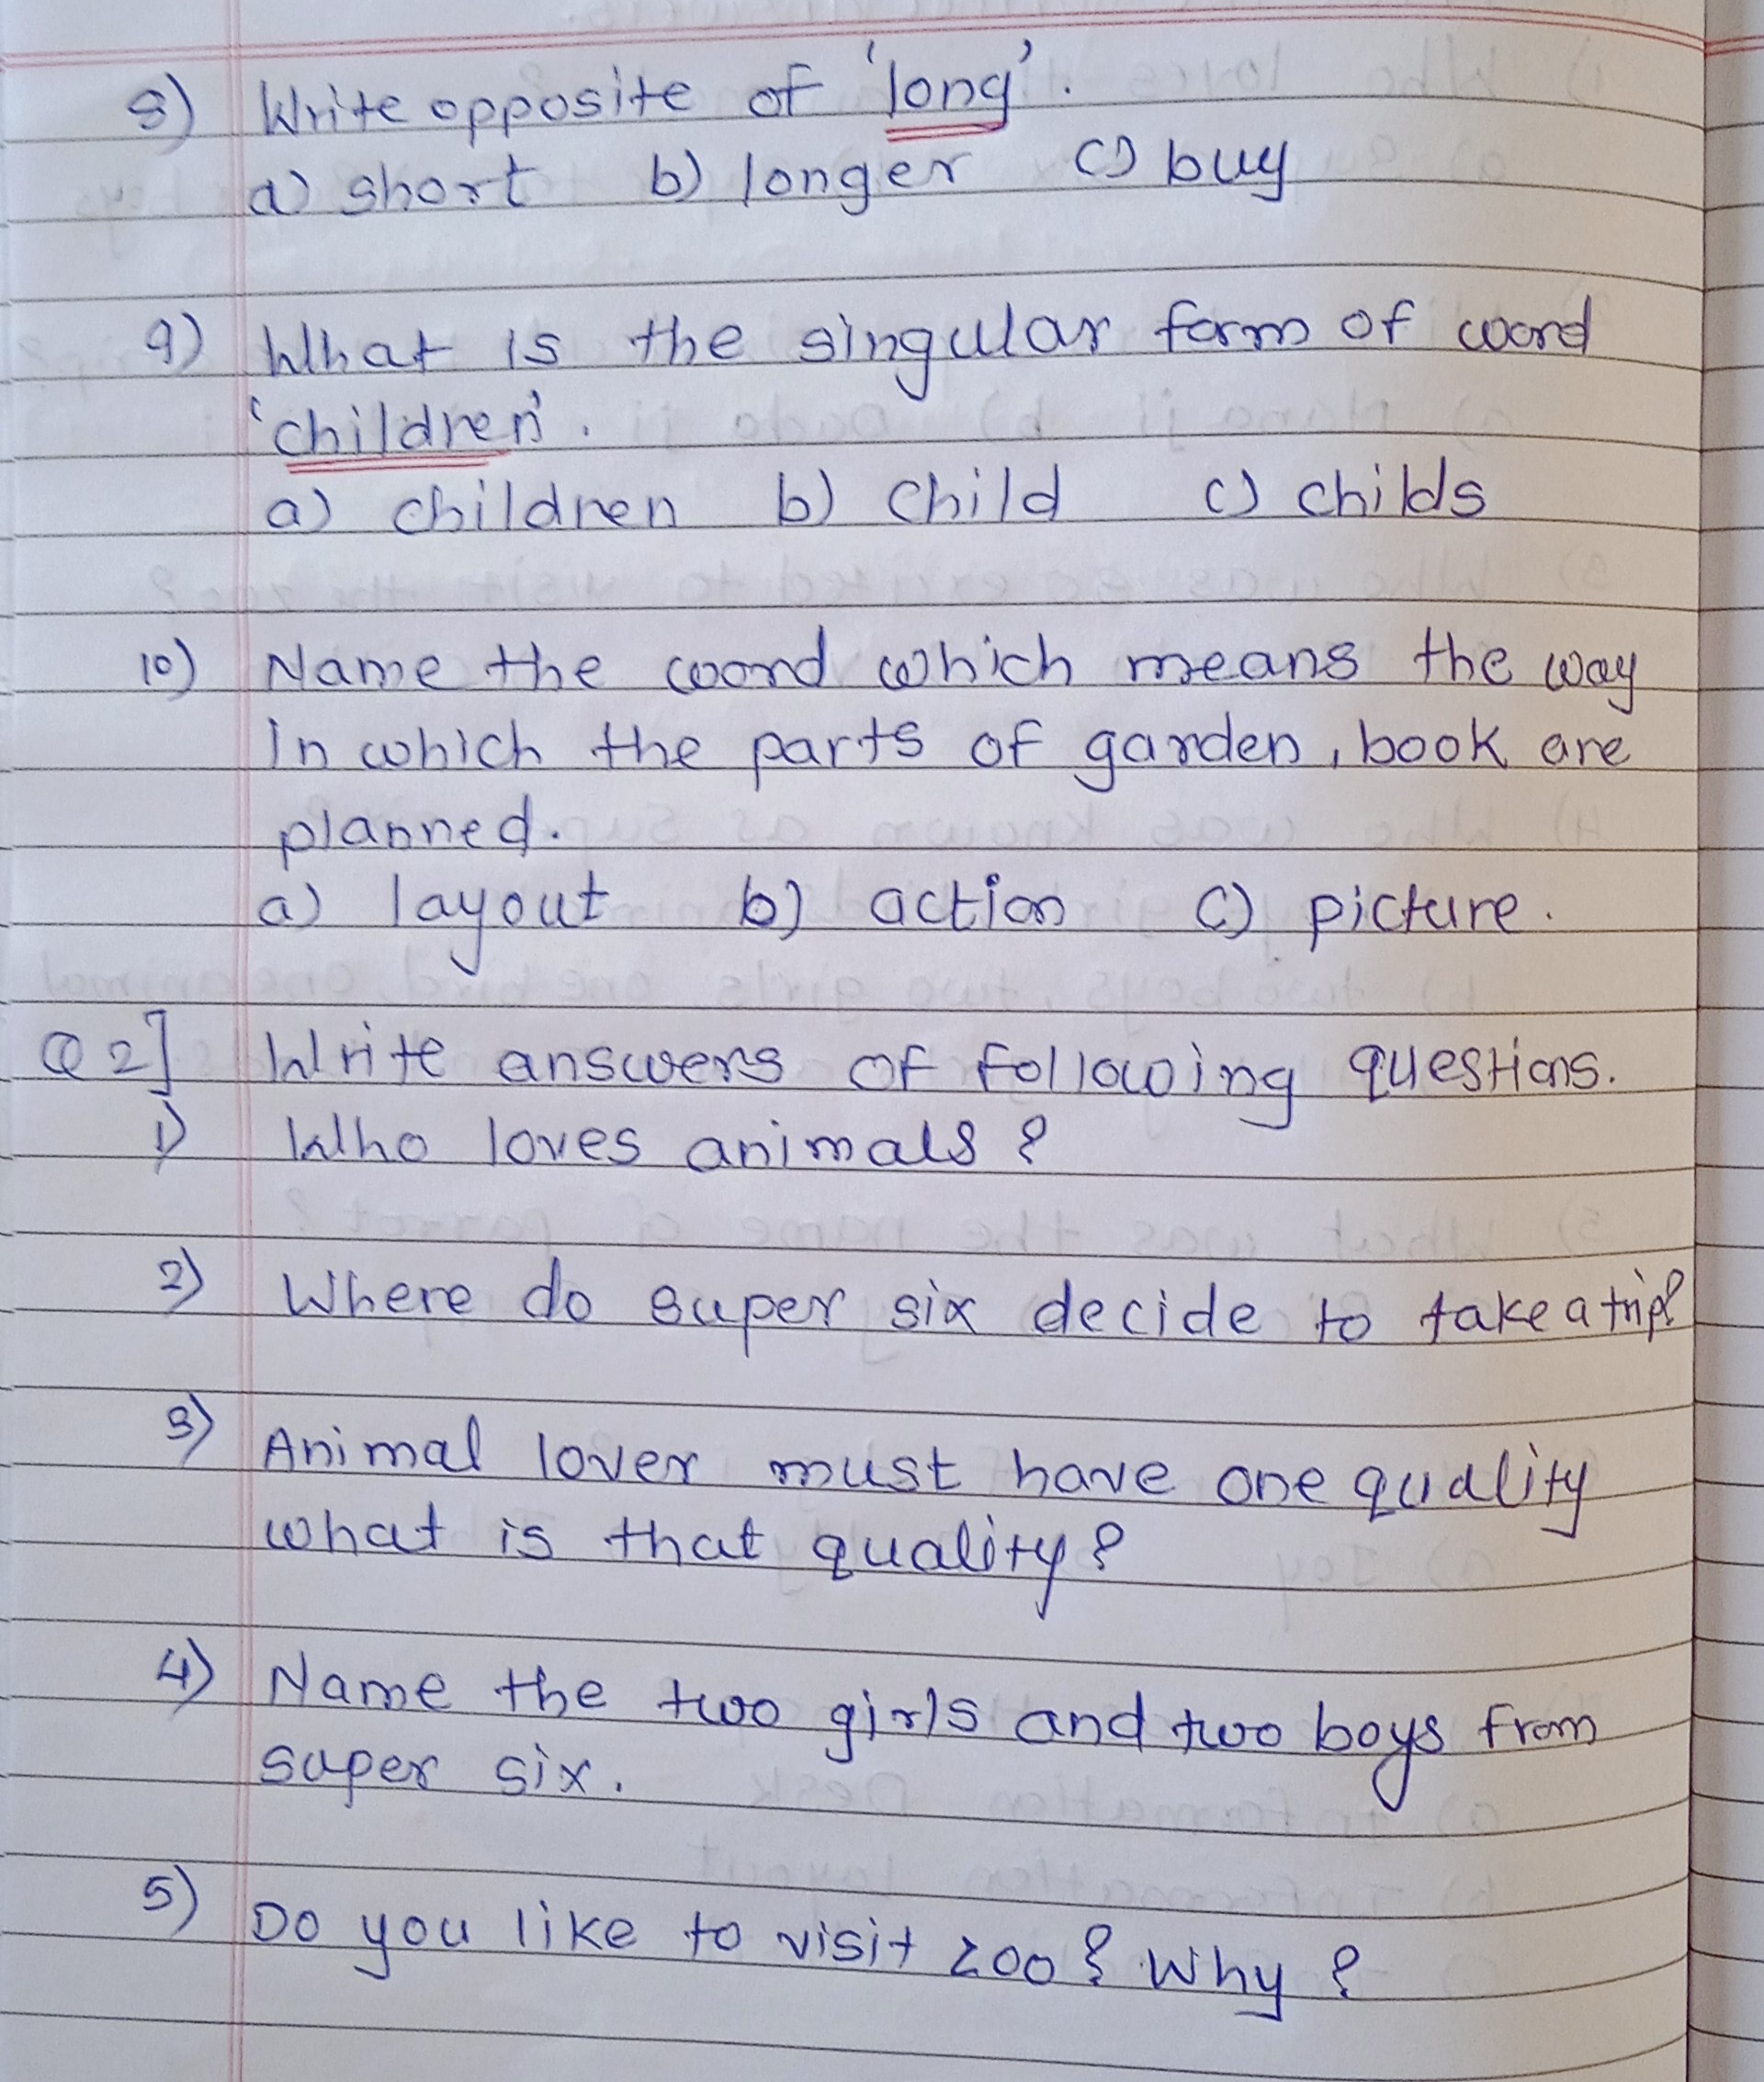 8) Write opposite of 'long'.
a) short b) longer c) buy
9) What is the singular form of word
'children'.
a) children b) child c) childs
10) Name the word which means the way
in which the parts of garden, book are
planned.
a) layout b) action c) picture.
Q2] Write answers of following questions.
1) Who loves animals?
2) Where do super six decide to take a trip?
3) Animal lover must have one quality
what is that quality?
4) Name the two girls and two boys from
super six.
5) Do you like to visit zoo? Why?